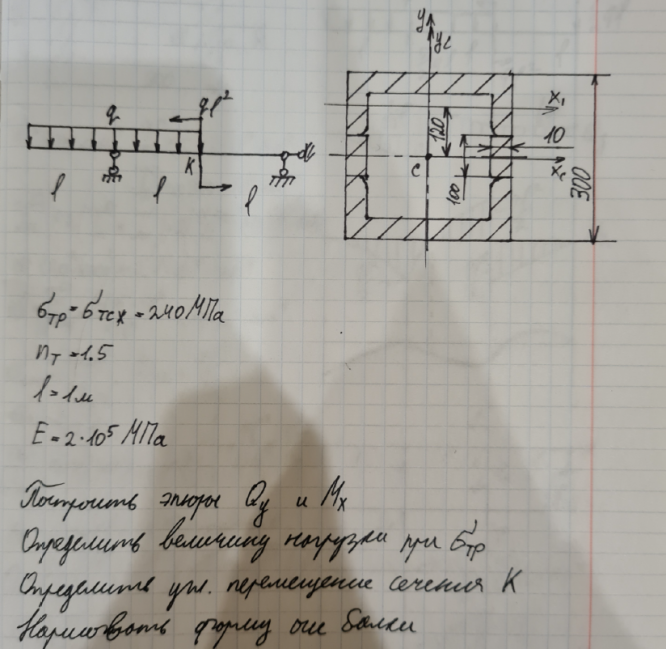 q
qℓ²
K
ℓ
ℓ
ℓ
y
yc
x₁
120
10
C
xc
100
300
σтр = σтсж = 240 МПа
nт = 1.5
ℓ = 1м
E = 2·10⁵ МПа
Построить эпюры Qy и Mx
Определить величину нагрузки при σтр
Определить угл. перемещение сечения K
Нарисовать форму оси балки